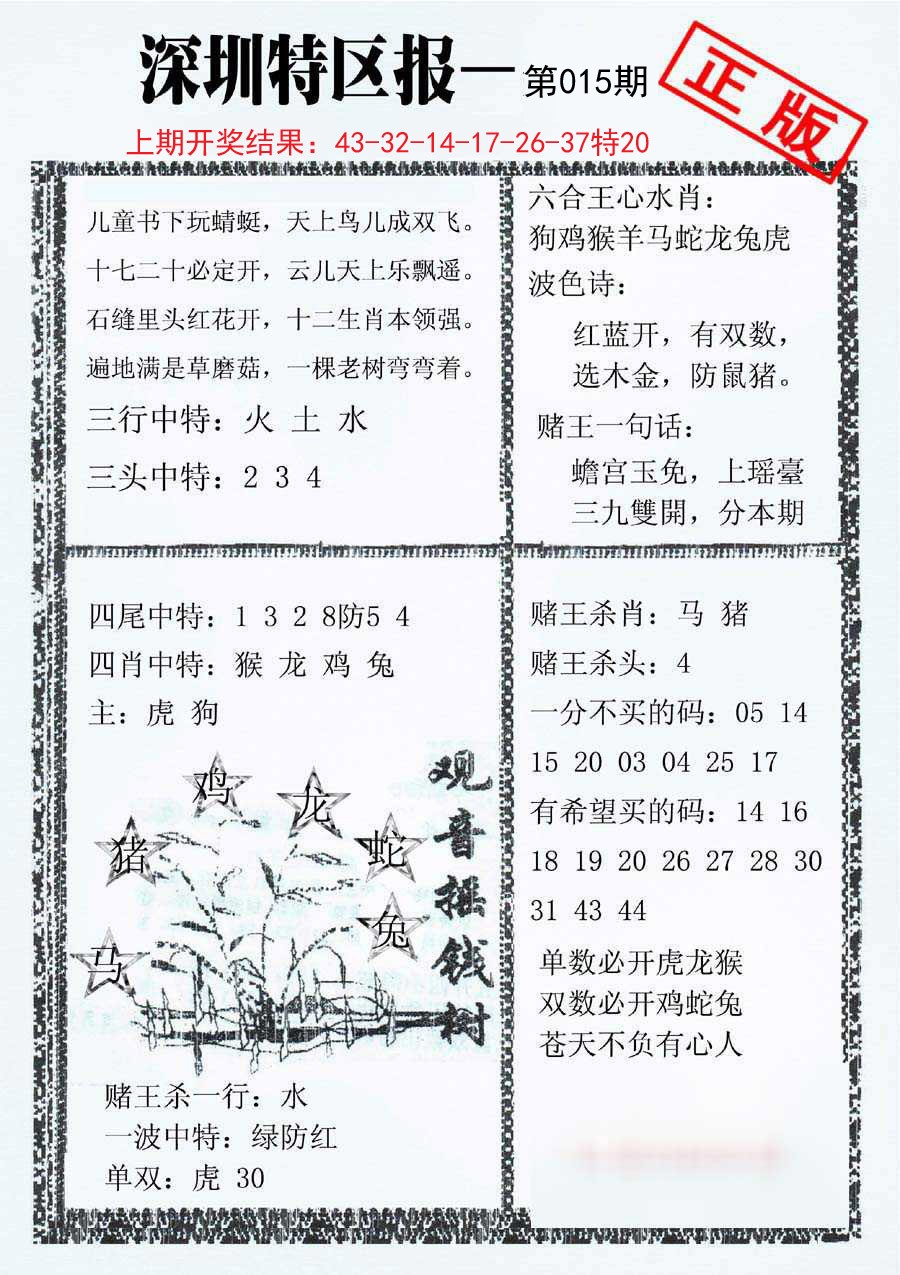 深圳特区报—第015期
正版
上期开奖结果：43-32-14-17-26-37特20
儿童书下玩蜻蜓，天上鸟儿成双飞。
十七二十必定开，云儿天上乐飘遥。
石缝里头红花开，十二生肖本领强。
遍地满是草磨菇，一棵老树弯弯着。
三行中特：火 土 水
三头中特：2 3 4
六合王心水肖：
狗鸡猴羊马蛇龙兔虎
波色诗：
红蓝开，有双数，
选木金，防鼠猪。
赌王一句话：
蟾宫玉免，上瑶臺
三九雙開，分本期
四尾中特：1 3 2 8防5 4
四肖中特：猴 龙 鸡 兔
主：虎 狗
鸡
龙
猪
蛇
兔
马
观音摇钱树
赌王杀一行：水
一波中特：绿防红
单双：虎 30
赌王杀肖：马 猪
赌王杀头：4
一分不买的码：05 14
15 20 03 04 25 17
有希望买的码：14 16
18 19 20 26 27 28 30
31 43 44
单数必开虎龙猴
双数必开鸡蛇兔
苍天不负有心人